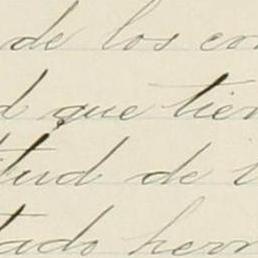 de los con
d que tien
titud de l
tado herm